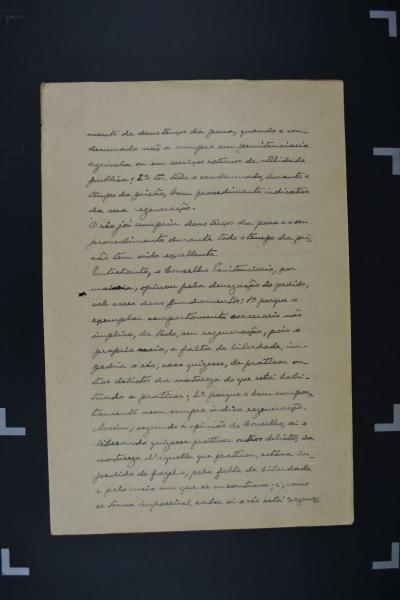 mente de dous terços da pena, quando o con-
demnado não a cumpre em penitenciaria
agricola ou em serviços externos de utilidade
publica; 2º ter tido o condemnado, durante o
tempo da prisão, bom procedimento indicativo
da sua regeneração.
O réo já cumpriu dous terços da pena e o seu
procedimento durante todo o tempo da pri-
são tem sido excellente.
Entretanto, o Conselho Penitenciario, por
maioria, opinou pela denegação do pedido,
sob esses dous fundamentos: 1º porque o
exemplar comportamento carcerario não
implica, de todo, em regeneração, pois o
proprio meio, a falta de liberdade, im-
pediria o réo, caso quizesse, de praticar ou-
tros delictos da natureza do que está habi-
tuado a praticar; 2º porque o bom compor-
tamento nem sempre indica regeneração.
Assim, segundo a opinião do Conselho, si o
liberando quizesse praticar outros delictos da
natureza d'aquelle que praticou, estava im-
pedido de fazel-o, pela falta de liberdade
e pelo meio em que se encontrava; e, como
se torna impossivel saber si o réo está regene-